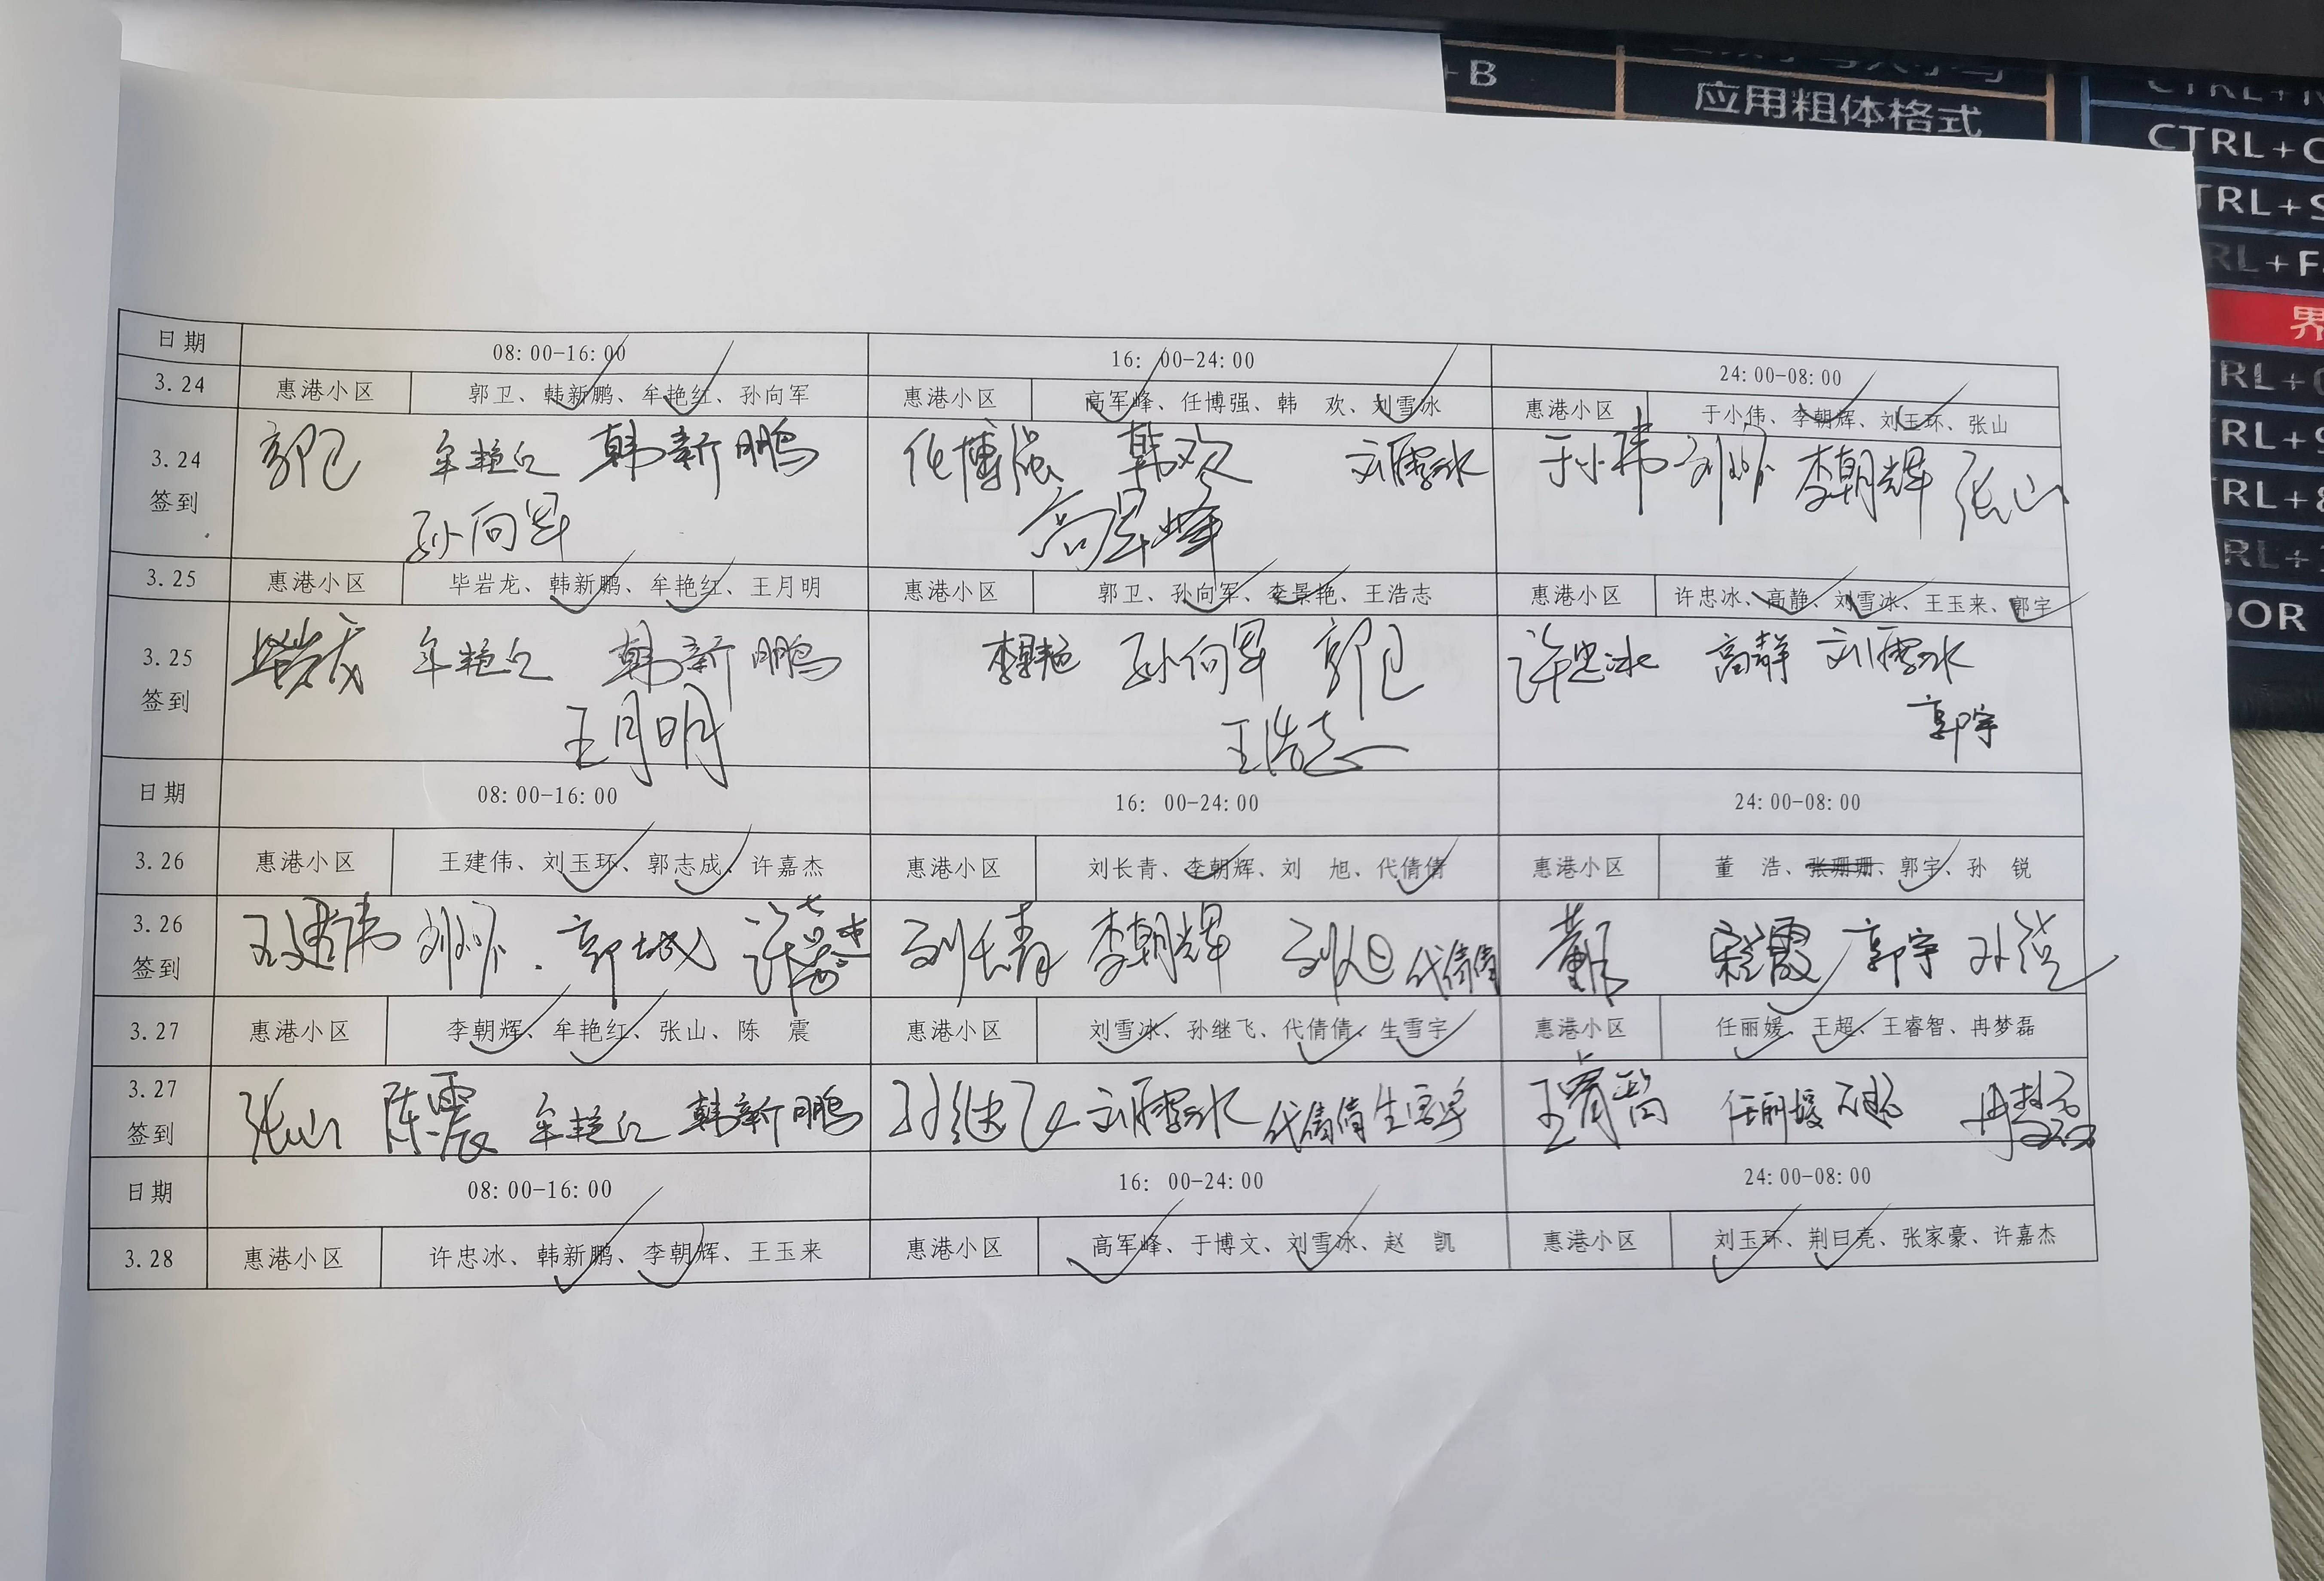 +B
应用粗体格式
CTRL+C
TRL+S
RL+F
界
RL+
TRL+S
TRL+8
RL+
OOR
日期 08:00-16:00 16: 00-24:00 24:00-08:00
3.24 惠港小区 郭卫、韩新鹏、牟艳红、孙向军 惠港小区 高军峰、任博强、韩 欢、刘雪冰 惠港小区 于小伟、李朝辉、刘玉环、张山
3.24 签到 郭卫 牟艳红 韩新鹏 任博强 韩欢 刘雪冰 于小伟 刘玉环 李朝辉 张山
孙向军 高军峰
3.25 惠港小区 毕岩龙、韩新鹏、牟艳红、王月明 惠港小区 郭卫、孙向军、李景艳、王浩志 惠港小区 许忠冰、高静、刘雪冰、王玉来、郭宇
3.25 签到 毕岩龙 牟艳红 韩新鹏 李景艳 孙向军 郭卫 许忠冰 高静 刘雪冰
王月明 王浩志 郭宇
日期 08:00-16:00 16: 00-24:00 24:00-08:00
3.26 惠港小区 王建伟、刘玉环、郭志成、许嘉杰 惠港小区 刘长青、李朝辉、刘 旭、代倩倩 惠港小区 董 浩、张珊珊、郭宇、孙 锐
3.26 签到 王建伟 刘玉环 郭志成 许嘉杰 刘长青 李朝辉 刘旭 代倩倩 董浩 郭宇 孙锐
3.27 惠港小区 李朝辉、牟艳红、张山、陈 震 惠港小区 刘雪冰、孙继飞、代倩倩、生雪宇 惠港小区 任丽媛、王超、王睿智、冉梦磊
3.27 签到 张山 陈震 牟艳红 韩新鹏 孙继飞 刘雪冰 代倩倩 生雪宇 王睿智 任丽媛 王超 冉梦磊
日期 08:00-16:00 16: 00-24:00 24:00-08:00
3.28 惠港小区 许忠冰、韩新鹏、李朝辉、王玉来 惠港小区 高军峰、于博文、刘雪冰、赵 凯 惠港小区 刘玉环、荆曰亮、张家豪、许嘉杰